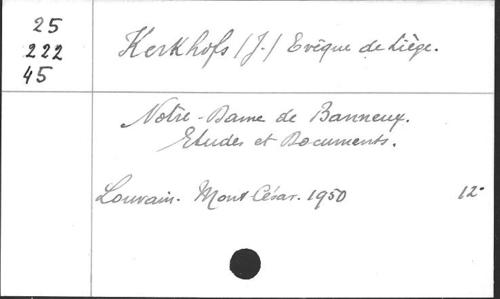 25
222
45
Kerkhofs (J.) Evêque de Liège.
Notre-Dame de Banneux.
Etudes et Documents.
Louvain. Mont César. 1950 12°